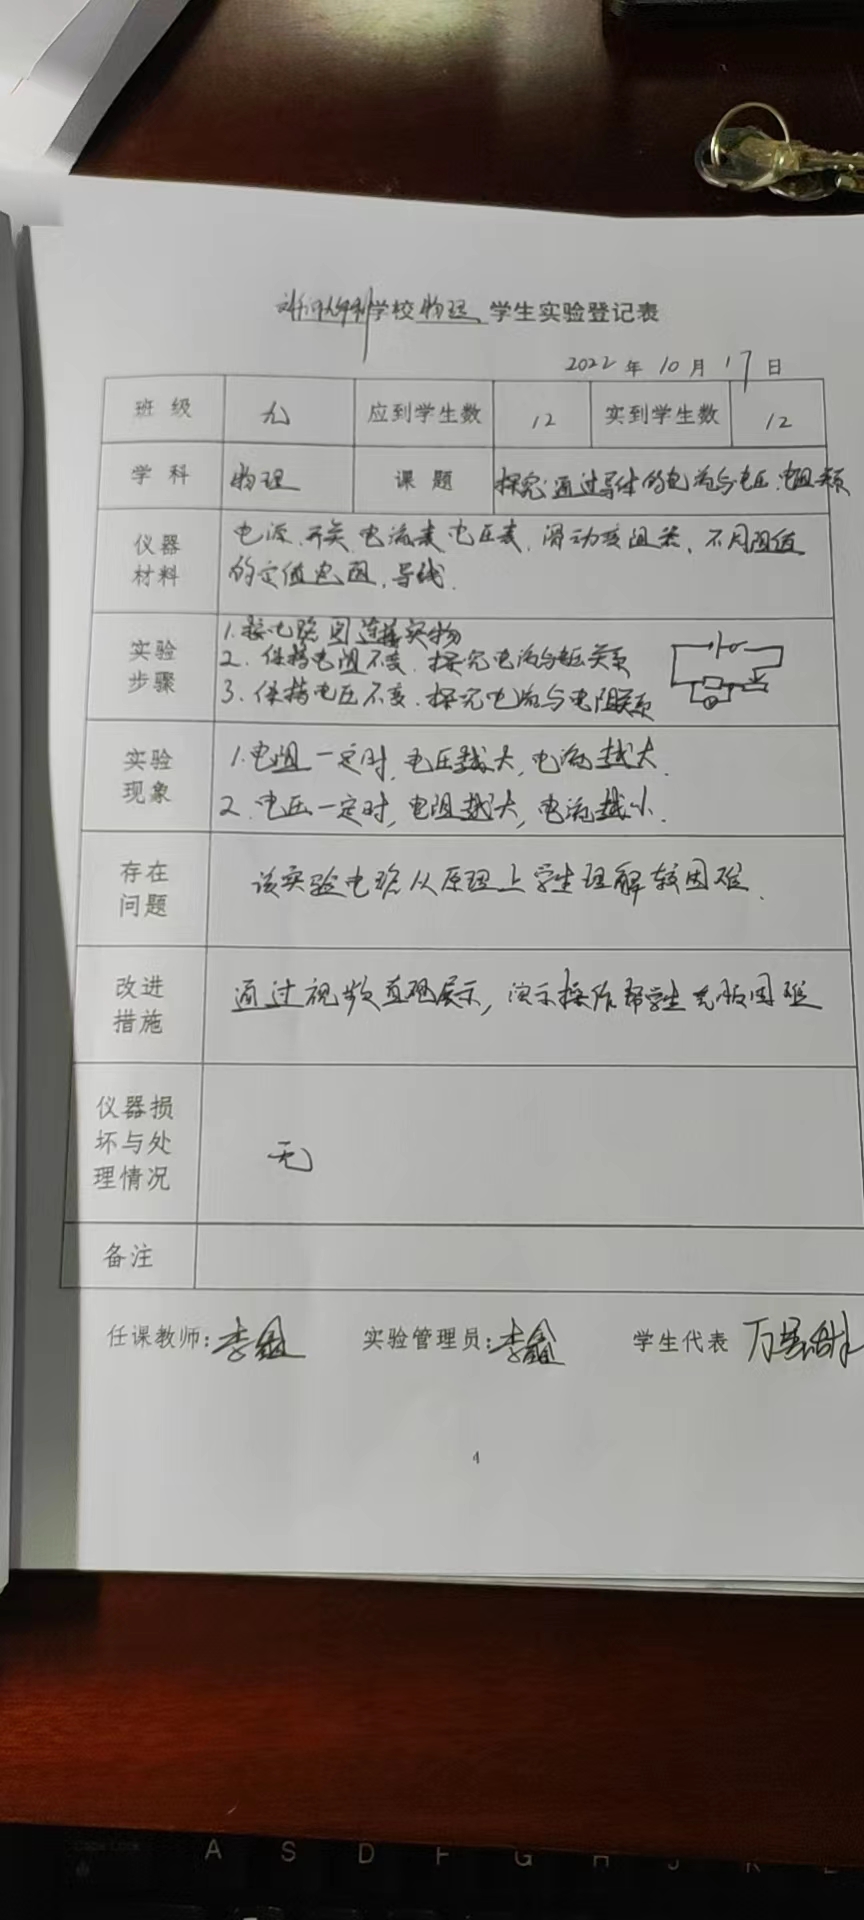 学校物理学生实验登记表
2022年10月17日
班级 九 应到学生数 12 实到学生数 12
学科 物理 课题 探究:通过导体的电流与电压、电阻关系
仪器材料
电源、开关、电流表、电压表、滑动变阻器、不同阻值
的定值电阻、导线.
实验步骤
1.按电路图连接实物
2.保持电阻不变.探究电流与电压关系
3.保持电压不变.探究电流与电阻关系
实验现象
1.电阻一定时,电压越大,电流越大.
2.电压一定时,电阻越大,电流越小.
存在问题
该实验电路从原理上学生理解较困难.
改进措施
通过视频直观展示,演示操作帮学生克服困难
仪器损坏与处理情况
无
备注
任课教师:李鑫 实验管理员:李鑫 学生代表 万
A S D F G H J K L